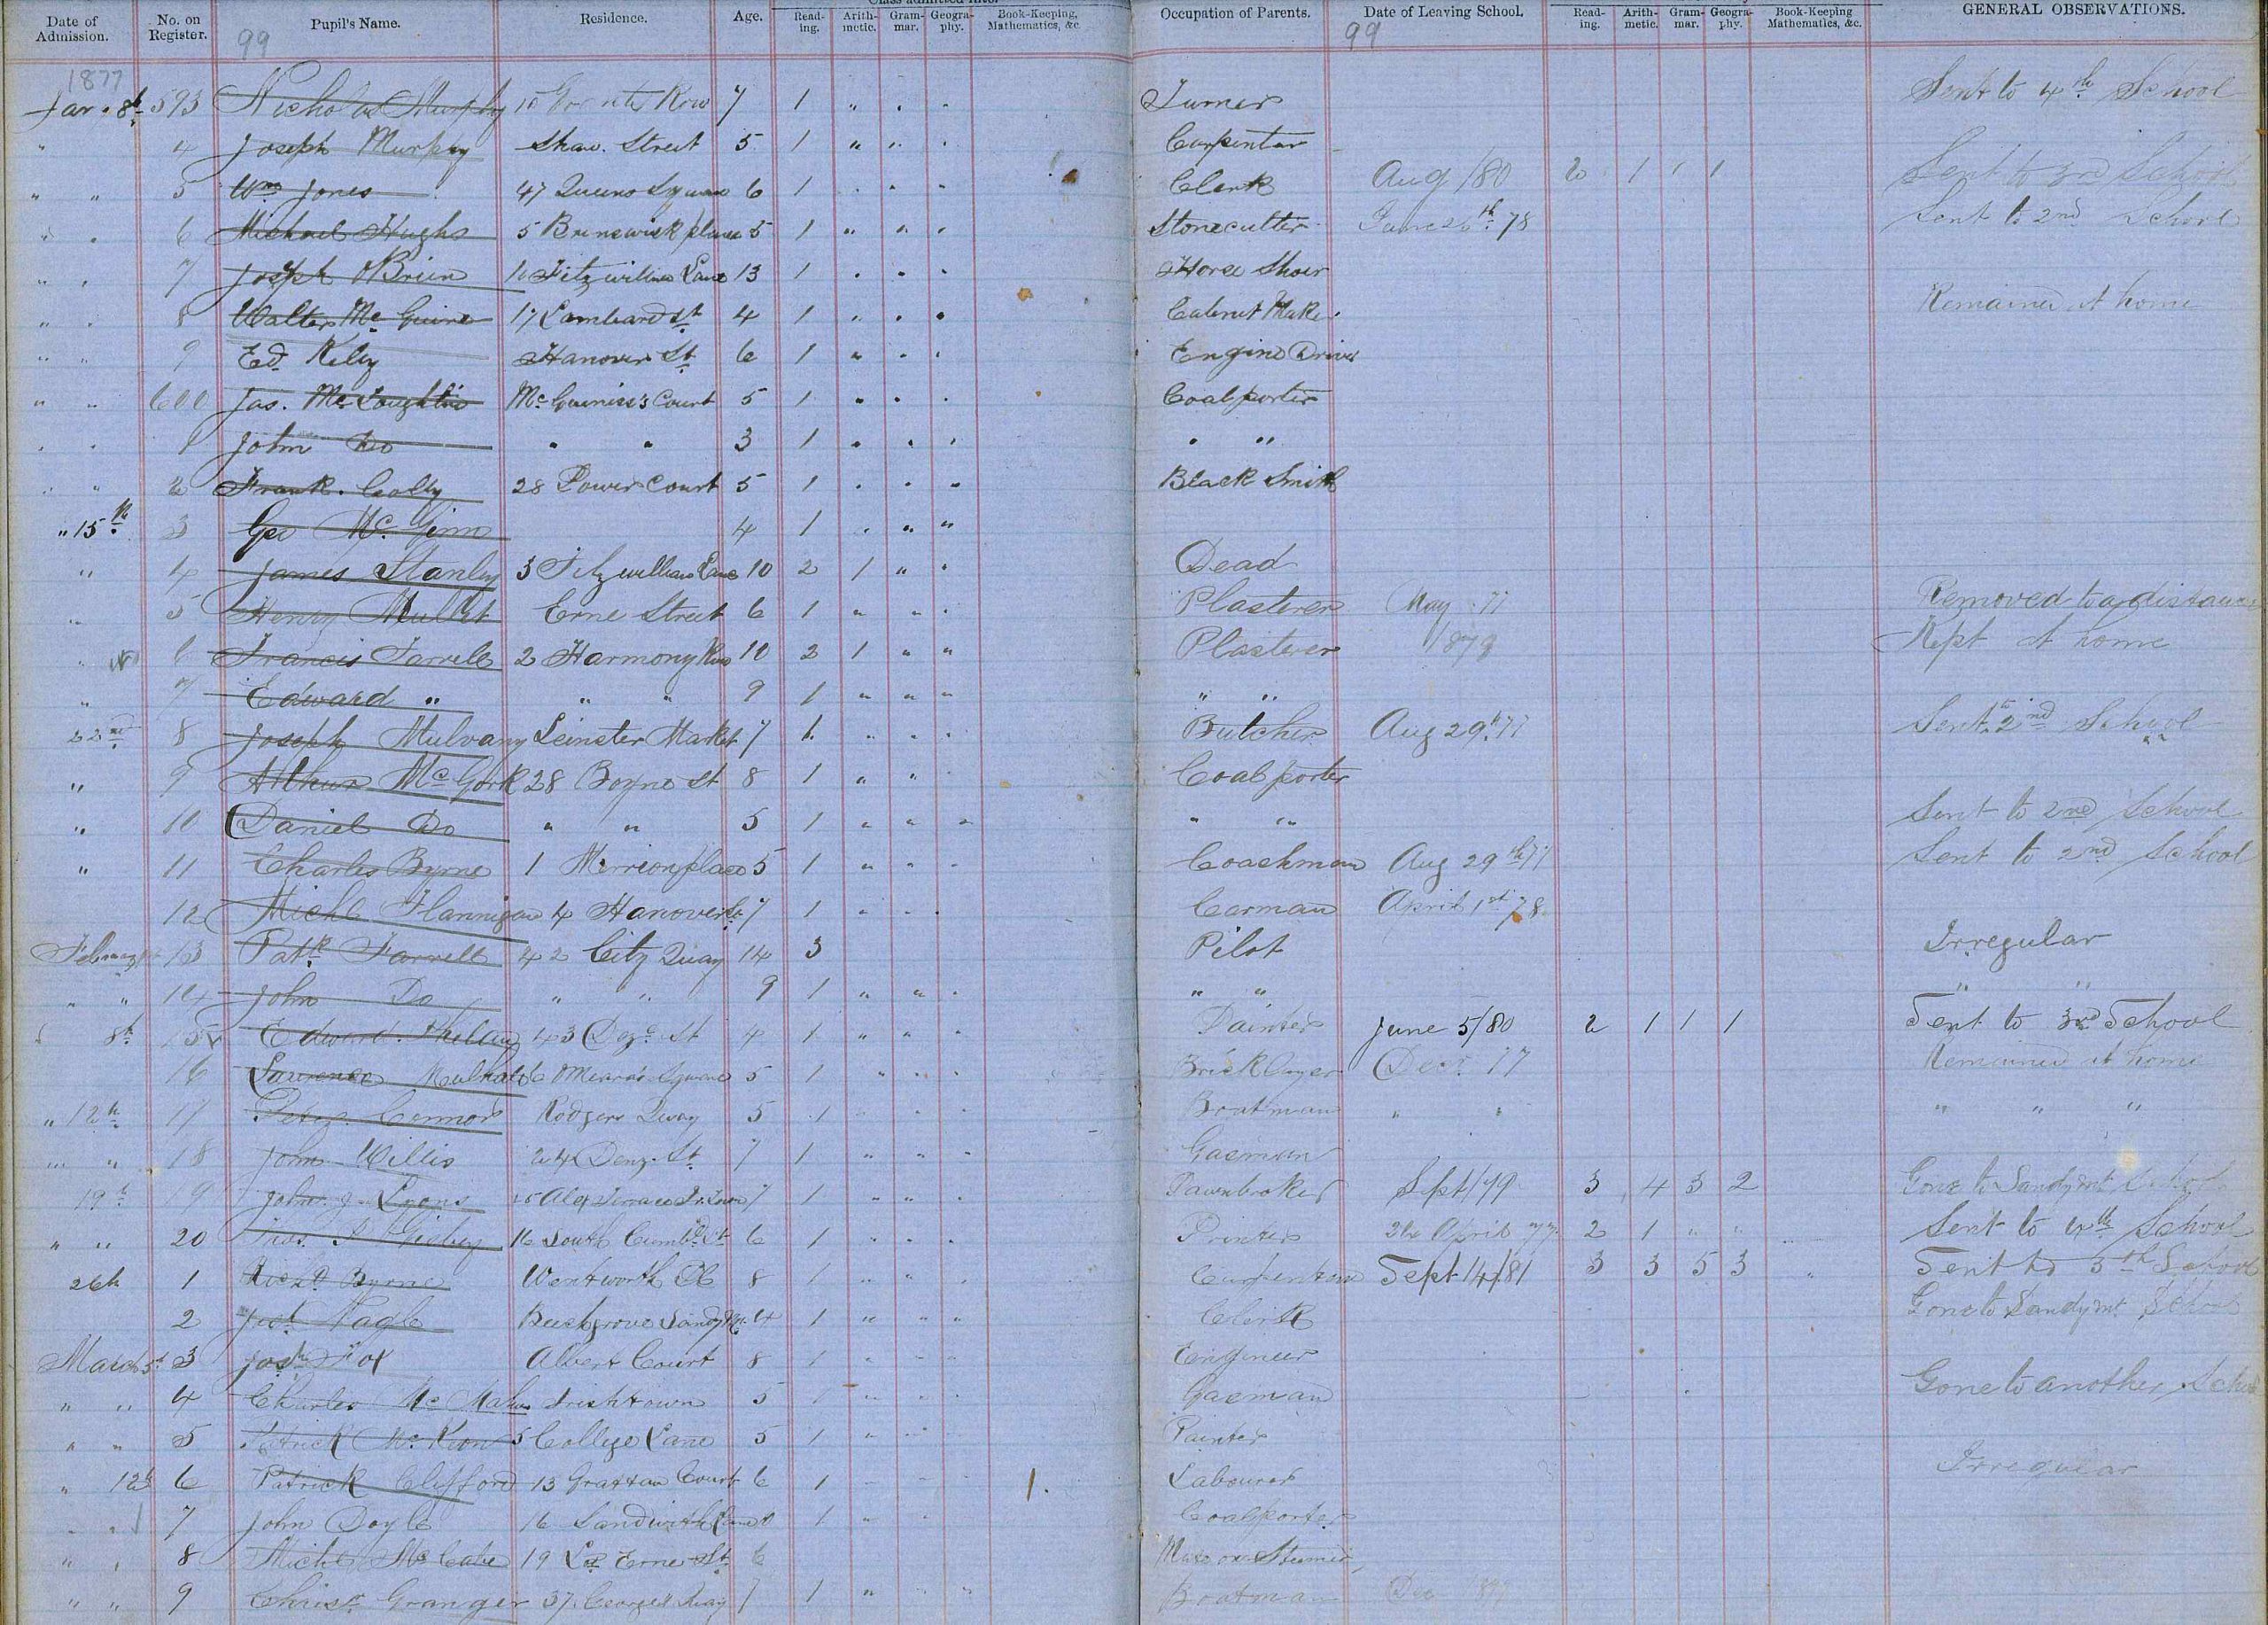 Class admitted into.
Date of Admission. No. on Register. Pupil's Name. Residence. Age. Read-ing. Arith-metic. Gram-mar. Geogra-phy. Book-Keeping, Mathematics, &c. Occupation of Parents. Date of Leaving School. Read-ing. Arith-metic. Gram-mar. Geogra-phy. Book-Keeping Mathematics, &c. GENERAL OBSERVATIONS.
99 99
1877
Jan. 8th 593 Nicholas Murphy 10 Row 7 1 " " " Turner Sent to 4th School
" 4 Joseph Murphy Shaw Street 5 1 " " " Carpenter
" " 5 Wm Jones 47 Queens Square 6 1 " " " Clerk Aug /80 2 1 1 1 Sent to 3rd School
" " 6 Michael Hughs 5 Brunswick place 5 1 " " " Stonecutter June 26th 78 Sent to 2nd School
" " 7 Joseph OBrien 10 Fitzwilliam Lane 13 1 " " " Horse Shoer
" " 8 Walter McGuire 17 Lombard St 4 1 " " " Cabinet Maker Remained at home
" " 9 Ed. Kiley Hanover St. 6 1 " " " Engine Driver
" " 600 Jas. McLoughlin McGuiness's Court 5 1 " " " Coalporter
" " 1 John Do " " 3 1 " " " " "
" " 2 Frank Colly 28 Power Court 5 1 " " " Black Smith
" 15th 3 Geo McGinn 4 1 " " "
" 4 James Stanley 3 Fitzwilliam Lane 10 2 1 " " Dead
" 5 Henry Mullet Erne Street 6 1 " " " Plasterer May 77 Removed to a distance
" 6 Francis Farrell 2 Harmony Row 10 2 1 " " Plasterer 1879 Kept at home
" 7 Edward " " " 9 1 " " " " "
22nd 8 Joseph Mulvany Leinster Market 7 1 " " " Butcher Aug 29th 77 Sent to 2nd School
" 9 Arthur McGork 28 Boyne St 8 1 " " Coalporter
" 10 Daniel Do " " 5 1 " " " " " Sent to 2nd School
" 11 Charles Byrne 1 Merrion place 5 1 " " " Coachman Aug 29th 77 Sent to 2nd School
12 Michl Flannigan 4 Hanover St 7 1 " " " Carman April 1st 78
February 1st 13 Patk Farrell 42 City Quay 14 3 Pilot Irregular
" " 14 John Do " " 9 1 " " " " " "  "
8th 15 Edward Phelan 43 Denz. St 4 1 " " " Painter June 5/80 2 1 1 1 Sent to 3rd School
16 Laurence 6 OMeara's Square 5 1 " " " Bricklayer Decr. 77 Remained at home
" 12th 17 Peter Connor Rodgers Quay 5 1 " " " Boatman " " " " "
" " 18 John Willis 24 Denz. St. 7 1 " " " Gasman
19th 19 John J. Lyons 25 Alex Terrace 7 1 " " " Pawnbroker Sept/79 3 4 3 2 Gone to Sandymt School
" " 20 16 South Cumbd St 6 1 " " " Printer April 77 2 1 " " Sent to 4th School
26th 1 Richd Byrne Wentworth Pl 8 1 " " " Carpenter Sept 14/81 3 3 5 3 " Sent to 5th School
2 Nagle Beechgrove Sandymt. 4 1 " " " Clerk Gone to Sandymt School
March 5th 3 Josh Fox Albert Court 8 1 " " " Engineer
" " 4 Charles McMahon Irishtown 5 1 " " " Gasman Gone to another School
" " 5 Patrick McKeon 5 College Lane 5 1 " " " Painter
" 12th 6 Patrick Clifford 13 Grattan Court 6 1 " " " 1. Labourer Irregular
" " 7 John Doyle 16 Sandwith Lane 1 " " Coalporter
" " 8 Michl McCabe 19 Lr Erne St. 6 Mate on Steamer
" " 9 Chrisr. Granger 37 Georges Quay 7 1 " " " Boatman Dec